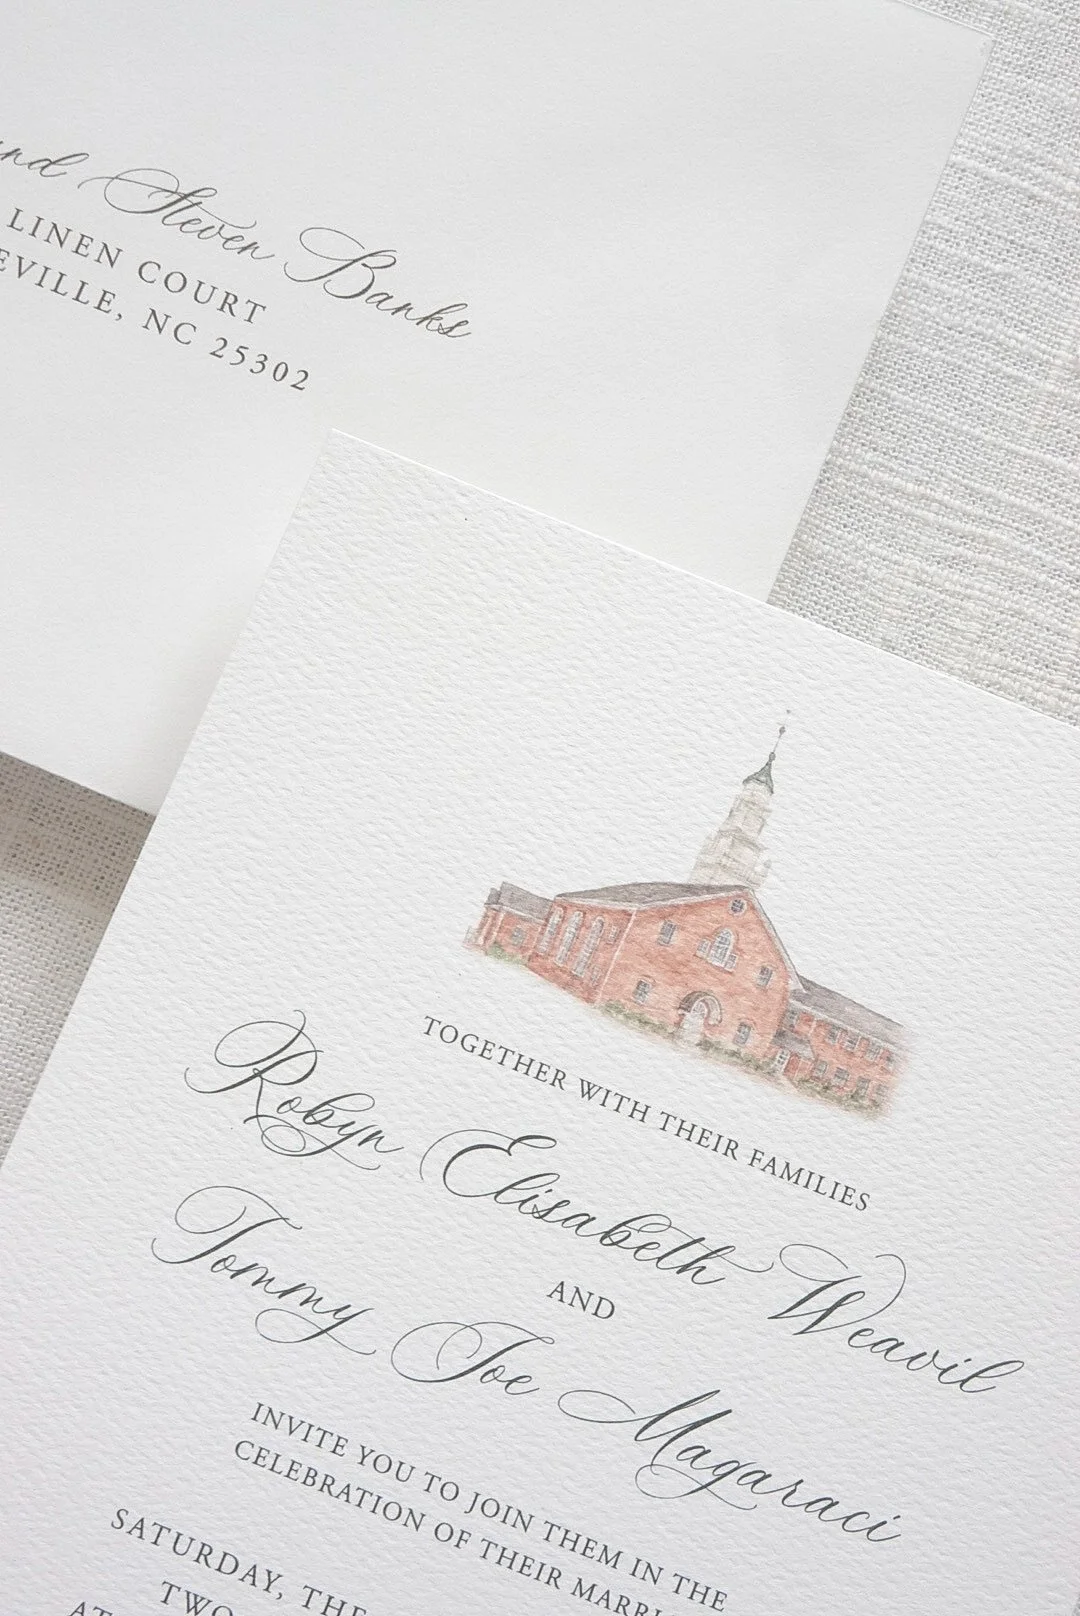 and Steven Banks
LINEN COURT
EVILLE, NC 25302
TOGETHER WITH THEIR FAMILIES
Robyn Elisabeth Weavil
AND
Tommy Joe Magaraci
INVITE YOU TO JOIN THEM IN THE
CELEBRATION OF THEIR MARRI
SATURDAY, THE
TWO
AT